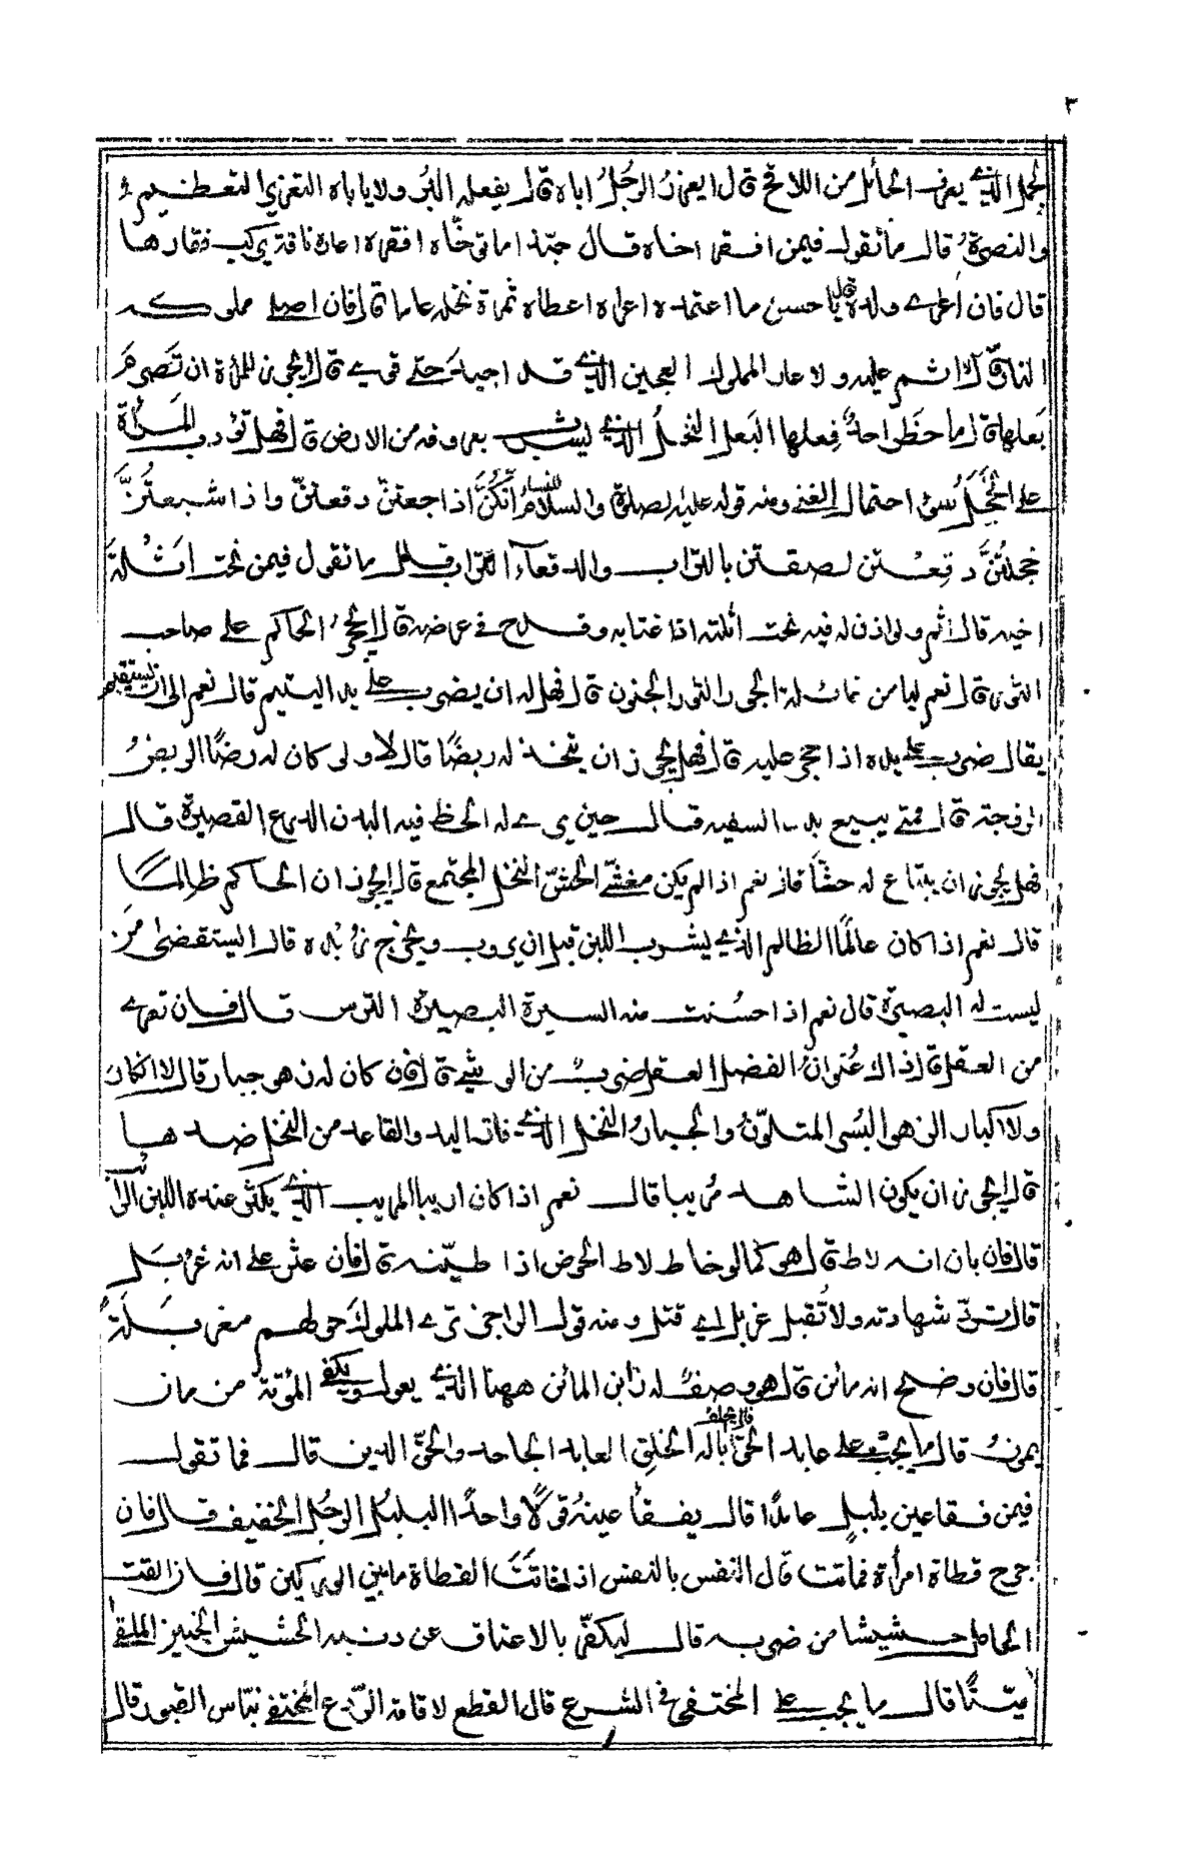 ٣
الجمل الذي يعرف الحائل من اللاقح قال ايعزر الرجل اباه قال يفعله البر ولا ياباه التعزير التعظيم
والنصرة قال ما تقول فيمن افقر اخاه قال حبذا ما توخاه افقره اعاره ناقة يركب فقارها
قال فان اعرى ولده قال يا حسن ما اعتمده اعراه اعطاه ثمرة نخله عاما قال فان اصلى مملوكه
النار قال لا اثم عليه ولا عار المملوك العجين الذي قد اجيد حتى قوي قال ايجوز للمرأة ان تصرم
بعلها قال ما حظر احد فعلها البعل النخل الذي يشرب بعروقه من الارض قال فهل تؤدب المرأة
على الخجل سوء احتمال الغنى ومنه قوله عليه الصلوة والسلام للنساء انكن اذا جعتن دقعتن واذا شبعتن
خجلتن دقعتن لصقتن بالتراب والدقعاء التراب قال ما تقول فيمن نحت اثلة
اخيه قال اثم ولو اذن له فيه نحت اثلته اذا اغتابه وقدح في عرضه قال ايحجر الحاكم على صاحب
الثور قال نعم ليامن غائلة الجور الثور الجنون قال فهل له ان يضرب على يد اليتيم قال نعم الى ان يستقيم
يقال ضرب على يده اذا حجر عليه قال فهل يجوز ان يتخذ له ربضا قال لا ولو كان له رضا الربض
الزوجة قال فمتى يبيع بدن السفيه قال حين يرى له الحظ فيه البدن الدرع القصيرة قال
فهل يجوز ان يبتاع له حشا قال نعم اذا لم يكن مغشى الحش النخل المجتمع قال ايجوز ان الحاكم ظالما
قال نعم اذا كان عالما الظالم الذي يشرب اللبن قبل ان يروب ويخرج زبده قال ايستقضى من
ليست له البصيرة قال نعم اذا حسنت منه السيرة البصيرة الترس قال فان تعرى
من العقل قال ذاك عنوان الفضل العقل ضرب من الوشي قال فان كان له زهو جبار قال لا انكار
ولا اكبار الزهو البسر المتلون والجبار النخل الذي فات اليد والقاعد من النخل ضدها
قال ايجوز ان يكون الشاهد مريبا قال نعم اذا كان اريبا المريب الذي يكثر عنده اللبن الرائب
قال فان بان انه لاط قال هو كما لو خاط لاط الحوض اذا طينه قال فان عثر على انه غربل
قال ترد شهادته ولا تقبل غربل اي قتل ومنه قول الراجز ترى الملوك حولهم مغربلة
قال فان وضح انه مائن قال هو وصف له زائن المائن ههنا الذي يعول ويكفي المؤنة من مان
يمون قال ما يجب على عابد الحق قال يحلف باله الخلق العابد الجاحد والحق الدين قال فما تقول
فيمن فقا عين بلبل عامدا قال يفقأ عينه قولا واحدا البلبل الرجل الخفيف قال فان
جرح قطاة امرأة فماتت قال النفس بالنفس اذا فاتت القطاة ما بين الوركين قال فان القت
الحامل حشيشا من ضربه قال ليكفر بالاعتاق عن ذنبه الحشيش الجنين الملقى
ميتا قال ما يجب على المختفي في الشرع قال القطع لاقامة الردع المختفي نباش القبور قال